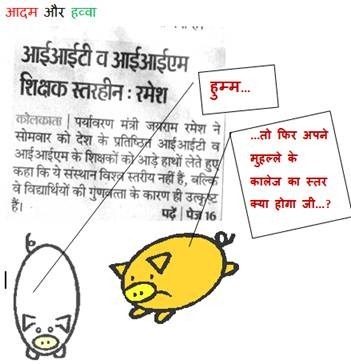 आदम और हव्वा
आईआईटी व आईआईएम
शिक्षक स्तरहीन : रमेश
कोलकाता | पर्यावरण मंत्री जयराम रमेश ने
सोमवार को देश के प्रतिष्ठित आईआईटी व
आईआईएम के शिक्षकों को आड़े हाथों लेते हुए
कहा कि ये संस्थान विश्व स्तरीय नहीं हैं, बल्कि
वे विद्यार्थियों की गुणवत्ता के कारण ही उत्कृष्ट
हैं।
पढ़ें | पेज 16
हुम्म...
...तो फिर अपने
मुहल्ले के
कालेज का स्तर
क्या होगा जी...?